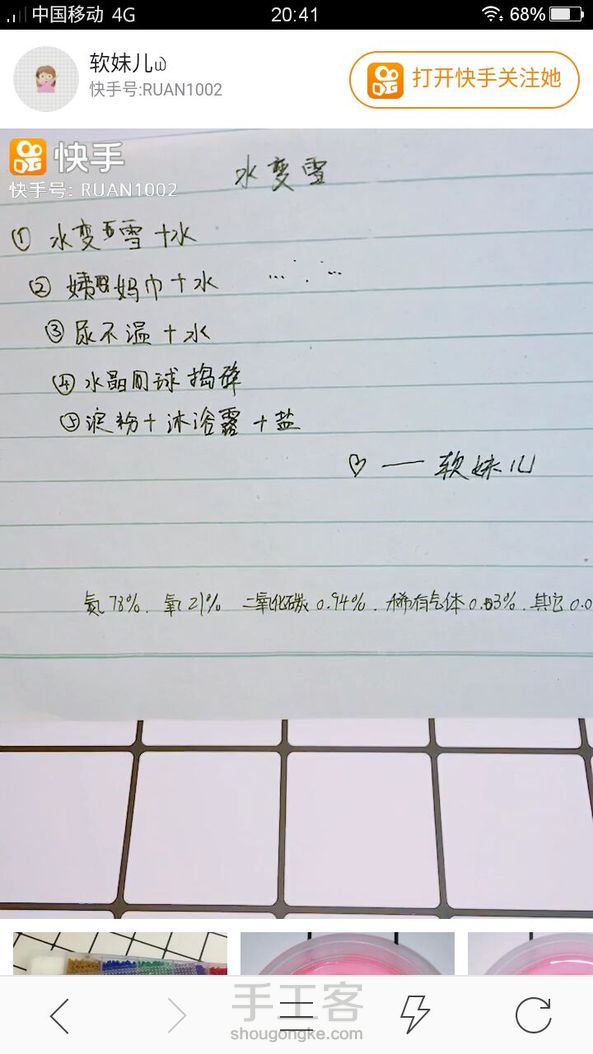 中国移动 4G 20:41 68%
软妹儿ω
快手号:RUAN1002
打开快手关注她
快手
快手号: RUAN1002
水变雪
① 水变雪+水
② 姨妈巾+水
③ 尿不湿+水
④ 水晶泥球捣碎
⑤ 淀粉+沐浴露+盐
♡ — 软妹儿
氮78%. 氧21% 二氧化碳0.94%. 稀有气体0.03%. 其它0.0
手工客
shougongke.com